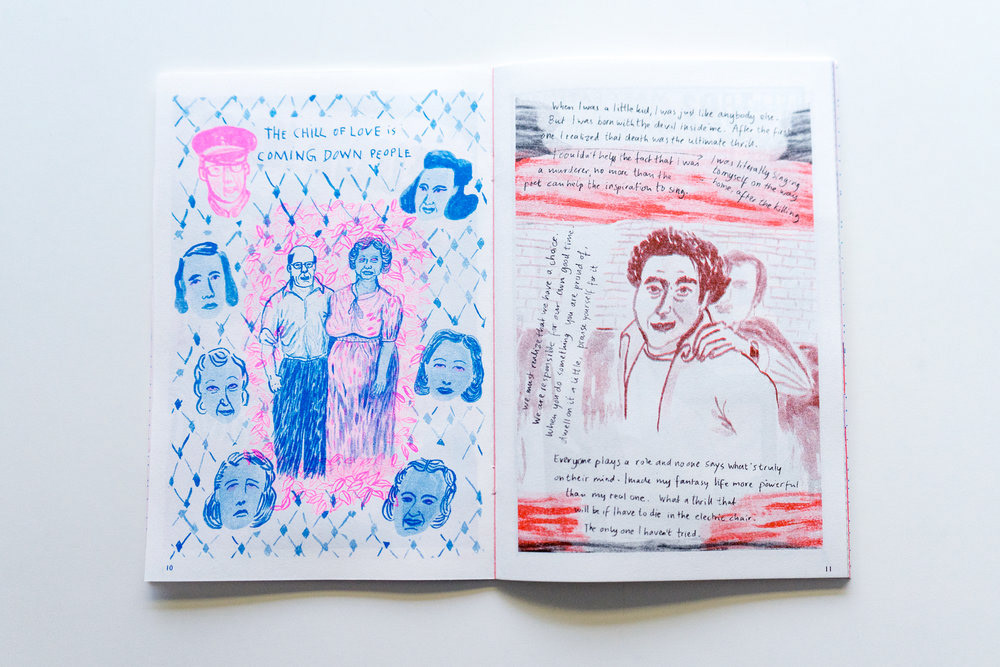 THE CHILL OF LOVE IS
COMING DOWN PEOPLE
10
When I was a little kid, I was just like anybody else.
But I was born with the devil inside me. After the first
one, I realized that death was the ultimate thrill.
I couldn't help the fact that I was
a murderer, no more than the
poet can help the inspiration to sing.
I was literally singing
to myself on the way
home, after the killing
We must realize that we have a choice.
We are responsible for our own good time.
When you do something you are proud of,
dwell on it a little, praise yourself for it
Everyone plays a role and no one says what's truly
on their mind. I made my fantasy life more powerful
than my real one. What a thrill that
will be if I have to die in the electric chair.
The only one I haven't tried.
11